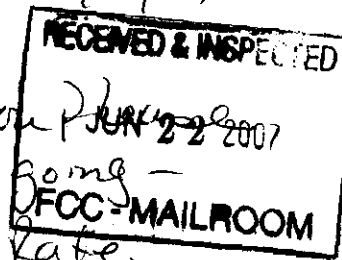 RECEIVED & INSPECTED
JUN 22 2007
going -
FCC - MAILROOM
Rate.